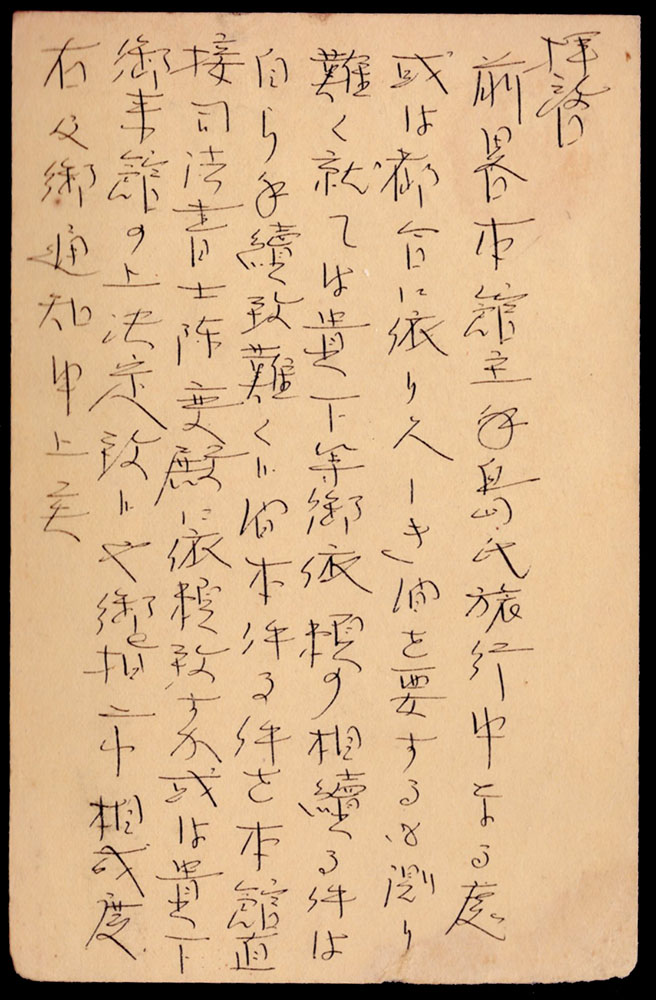 拝啓
前畧本館主手島氏旅行中なる處
或は都合に依り久しき間を要するも測り
難く就ては貴下等御依頼の相續る件は
自ら手續致難く候間本件る件を本館直
接司法書士陈 殿に依頼致すか或は貴下
御来館の上決定致候や御指示相成度
右及御通知申上候